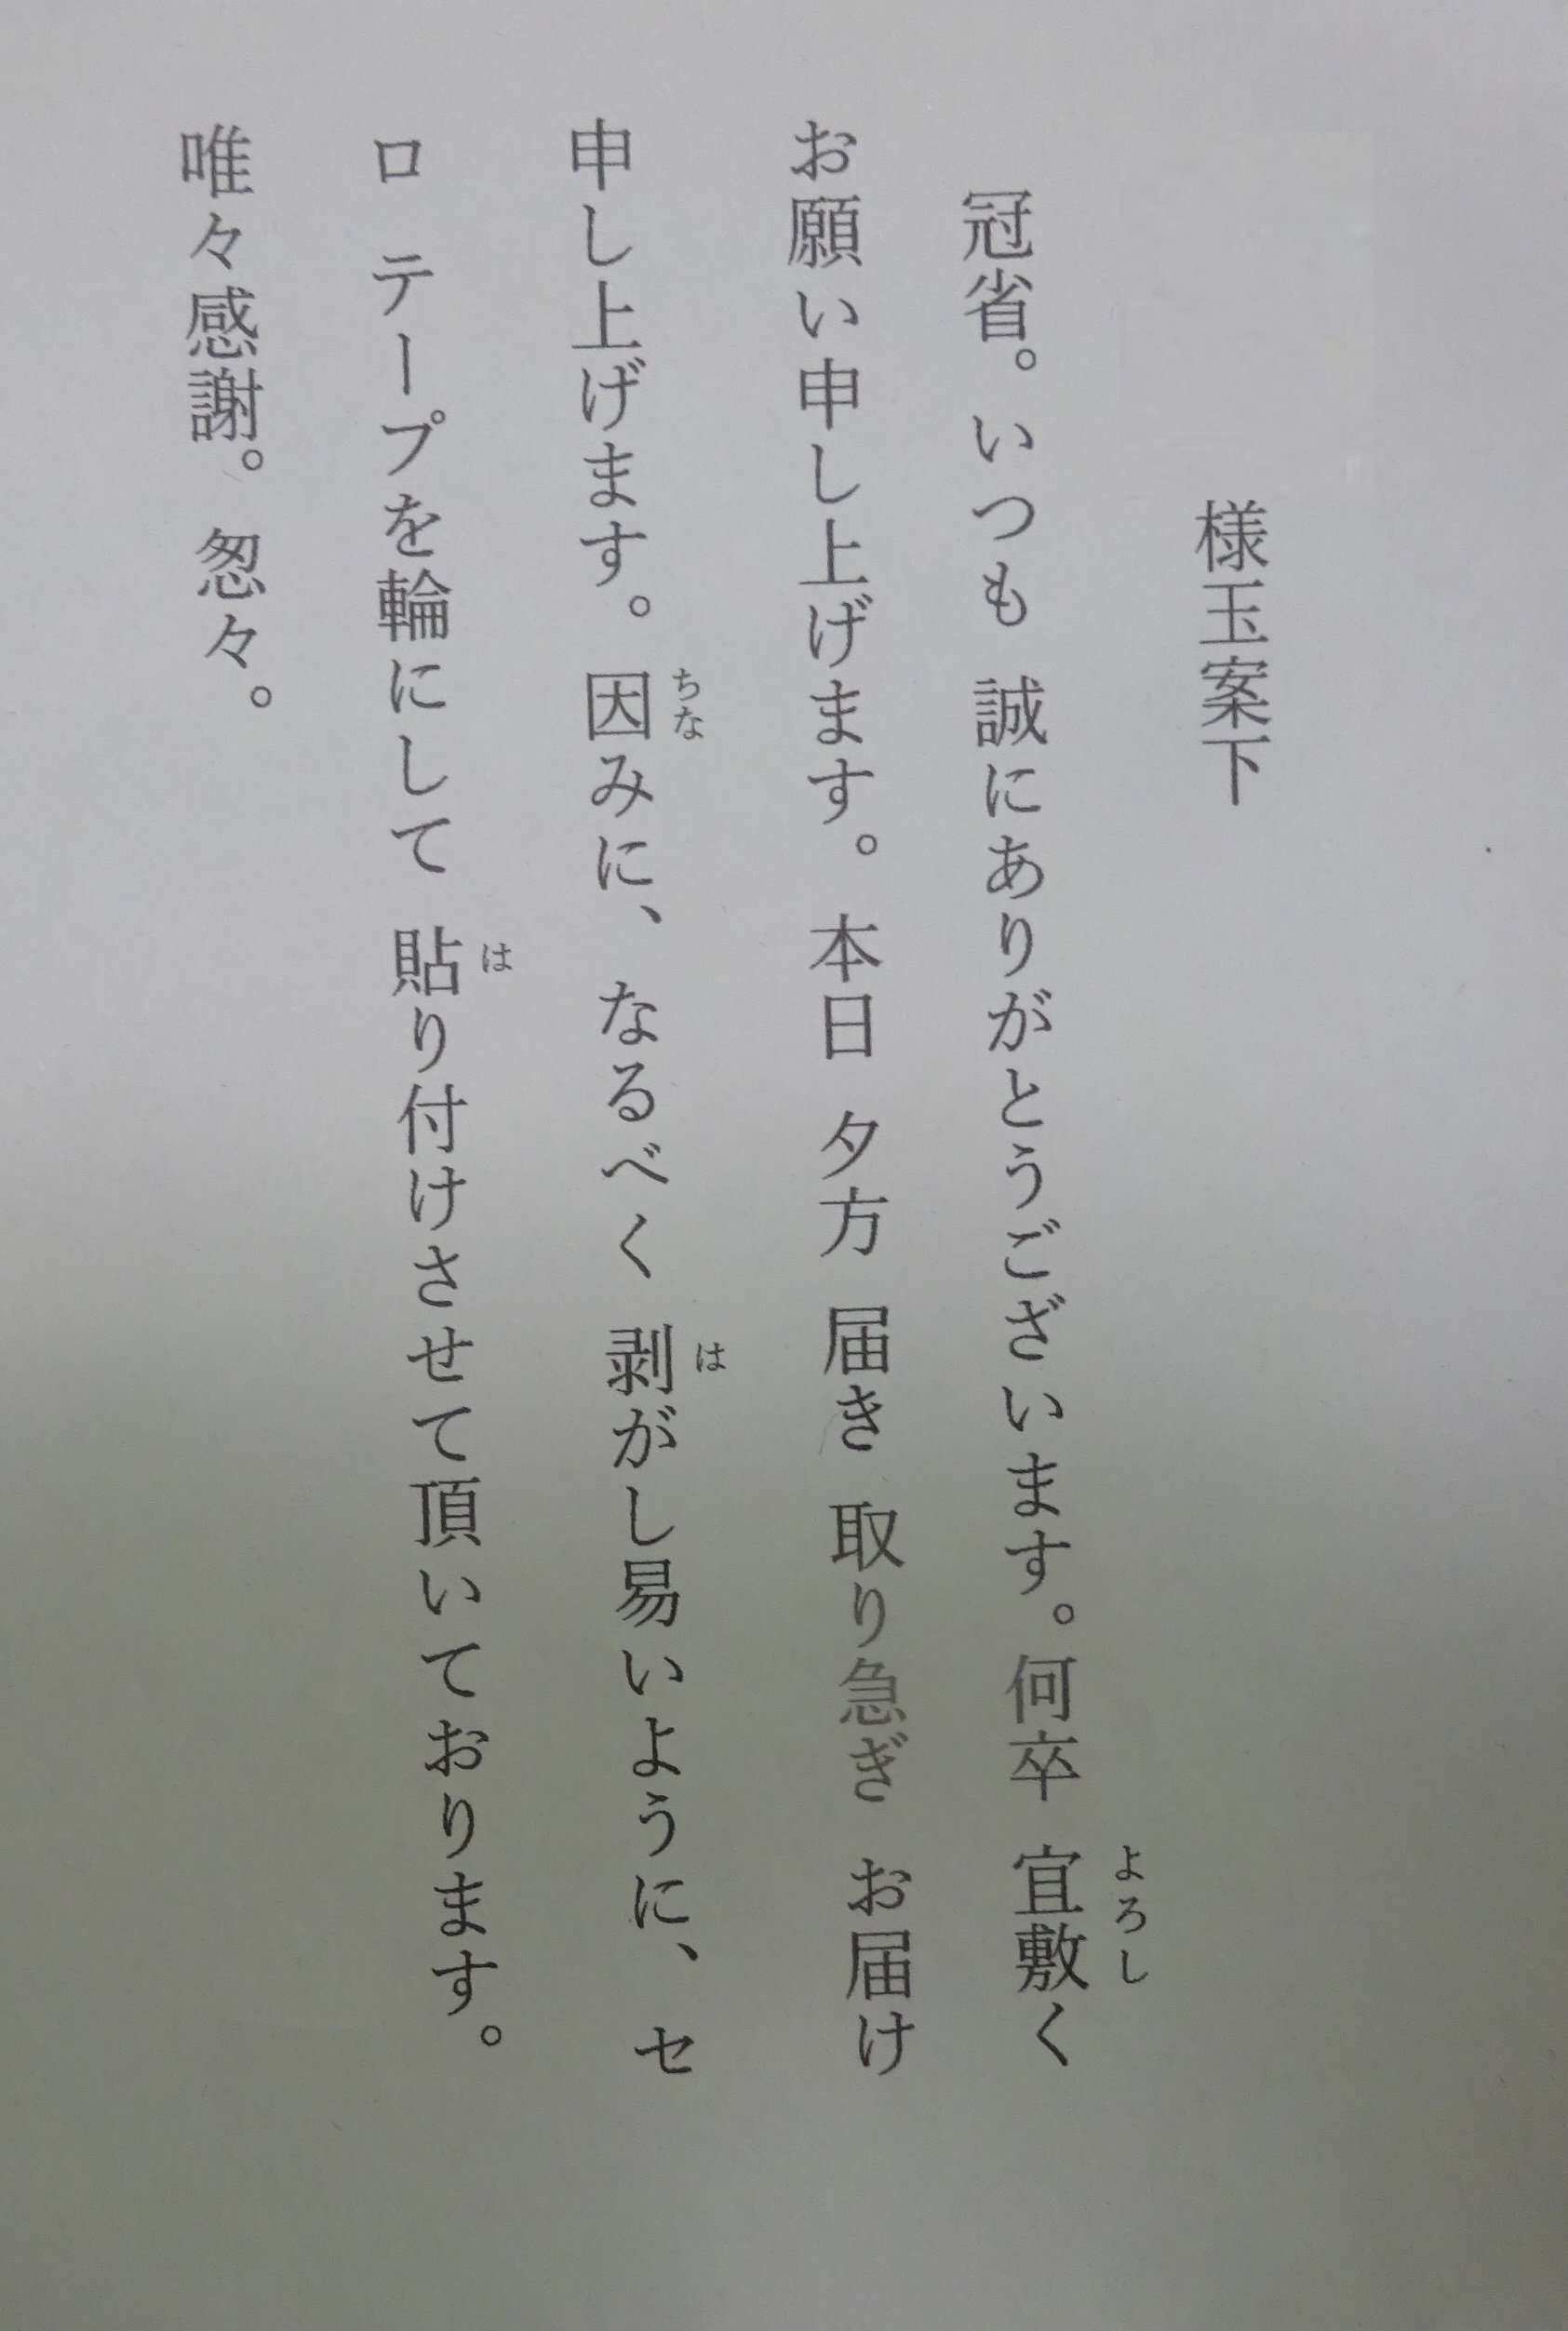 様玉案下
冠省。いつも 誠にありがとうございます。何卒 宜敷く
よろし
お願い申し上げます。本日 夕方 届き 取り急ぎ お届け
申し上げます。因みに、なるべく 剥がし易いように、セ
ちな
は
ロ テープを輪にして 貼り付けさせて頂いております。
は
唯々感謝。怱々。